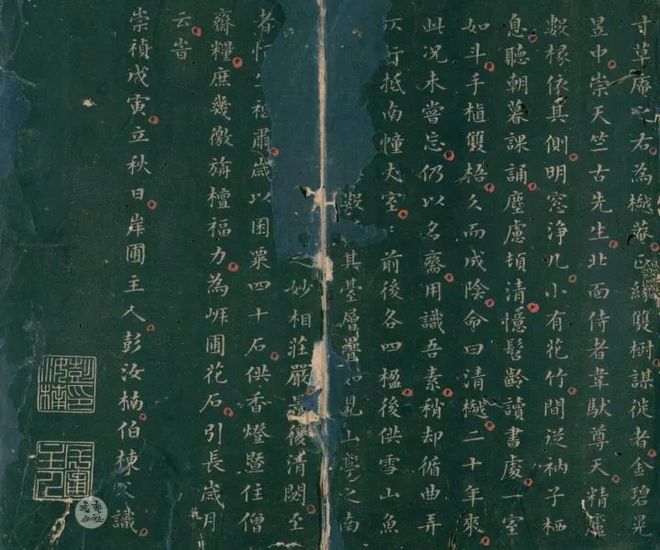 寸草席右為樾菴正雙樹謀徙者金碧晃
昱中崇天竺古先生北面侍者韋馱尊天精廬
數椽依其側明窓淨几小有花竹間逆衲子栖
息聽朝暮課誦塵慮頓清憶髫齡讀書處一室
如斗手植雙梧久而成陰命曰清樾二十年來
此況未嘗忘仍以名齋用識吾素稍却循曲弄
仄行抵南丈室前後各四楹後供雪山魚
其基層疊見山亭之南
之妙相莊嚴後清閟至
者肅歲以囷粟四十石供香燈暨住僧
齋糧庶幾徼旃檀福力為岸圃花石引長歲月
云旹
崇禎戊寅立秋日岸圃主人彭汝楠伯棟識